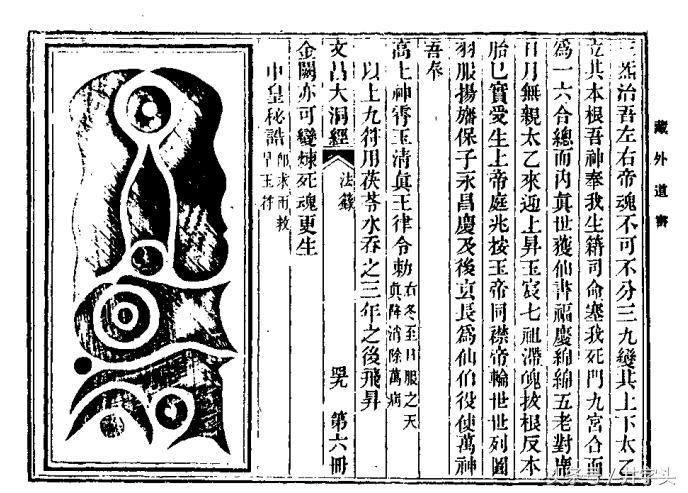 藏外道書
三炁治吾左右帝魂不可不分三九變其上下太乙
立其本根吾神奉我生籍司命塞我死門九宮合而
爲一六合總而內眞世獲仙書福慶綿綿五老對
日月無親太乙來迎上昇玉宸七祖滯魄拔根反本
胎巳實受生上帝庭兆按玉帝同襟帝輪世世列圖
羽服揚旛保子永昌慶及後哀長爲仙伯役使萬神
吾奉
高上神霄玉清眞王律令勅 右冬至日服之天眞降消除萬病
以上九符用茯苓水吞之三年之後飛昇
文昌大洞經 法籙 第六冊
金闕亦可變煉死魂更生
中皇秘誥